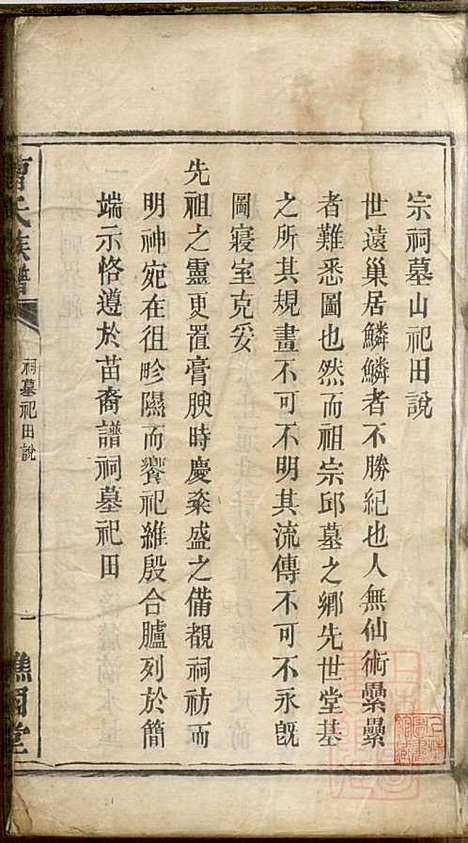 宗祠墓山祀田說
世遠巢居鱗鱗者不勝紀也人無仙術纍纍
者難悉圖也然而祖宗邱墓之鄉先世堂基
之所其規畫不可不明其流傳不可不永旣
圖寢室克妥
先祖之靈更置膏腴時慶粢盛之備覩祠祊而
明神宛在徂畛隰而饗祀維殷合臚列於簡
端示恪遵於苗裔譜祠墓祀田
氏族譜
祠墓祀田說
一
堂